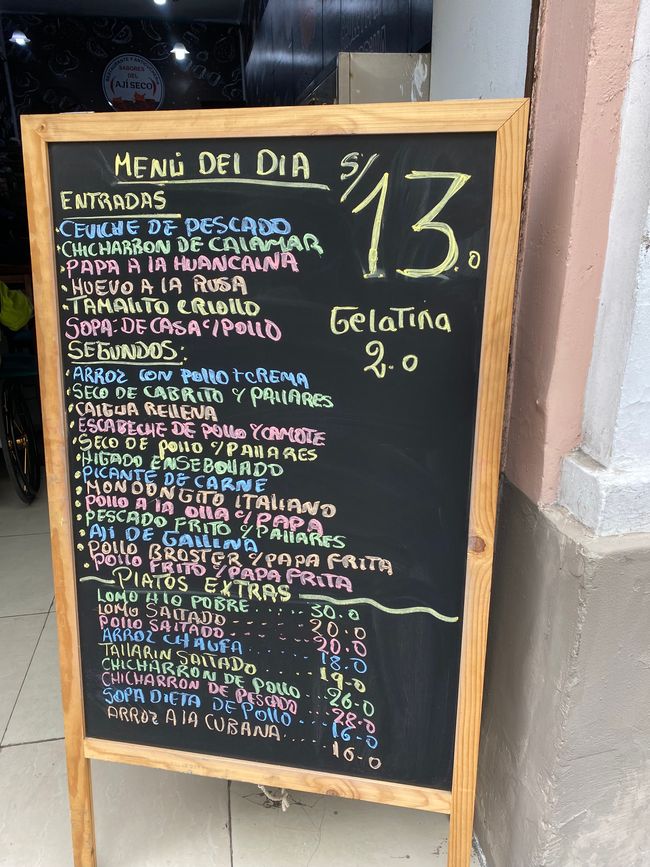 RESTAURANTE Y ANTICUCHERIA
SABORES
DEL
AJÍ SECO
MENÚ DEL DIA
S/13.0
ENTRADAS
· CEVICHE DE PESCADO
· CHICHARRON DE CALAMAR
· PAPA A LA HUANCAINA
· HUEVO A LA RUSA
· TAMALITO CRIOLLO
SOPA DE CASA c/POLLO
Gelatina
2.0
SEGUNDOS:
· ARROZ CON POLLO + CREMA
· SECO DE CABRITO Y PALLARES
· CAIGUA RELLENA
· ESCABECHE DE POLLO Y CAMOTE
· SECO DE POLLO Y/PALLARES
· HIGADO ENSEBOLLADO
PICANTE DE CARNE
· MONDONGITO ITALIANO
· POLLO A LA OLLA c/PAPA
· PESCADO FRITO c/PALLARES
· AJÍ DE GALLINA
· POLLO BROSTER c/PAPA FRITA
· POLLO FRITO c/PAPA FRITA
PLATOS EXTRAS
LOMO A LO POBRE ..... 30.0
LOMO SALTADO ..... 20.0
POLLO SALTADO ..... 20.0
ARROZ CHAUFA ..... 18.0
TALLARIN SALTADO ..... 19.0
CHICHARRON DE POLLO ... 26.0
CHICHARRON DE PESCADO ... 28.0
SOPA DIETA DE POLLO ... 16.0
ARROZ A LA CUBANA .... 16.0